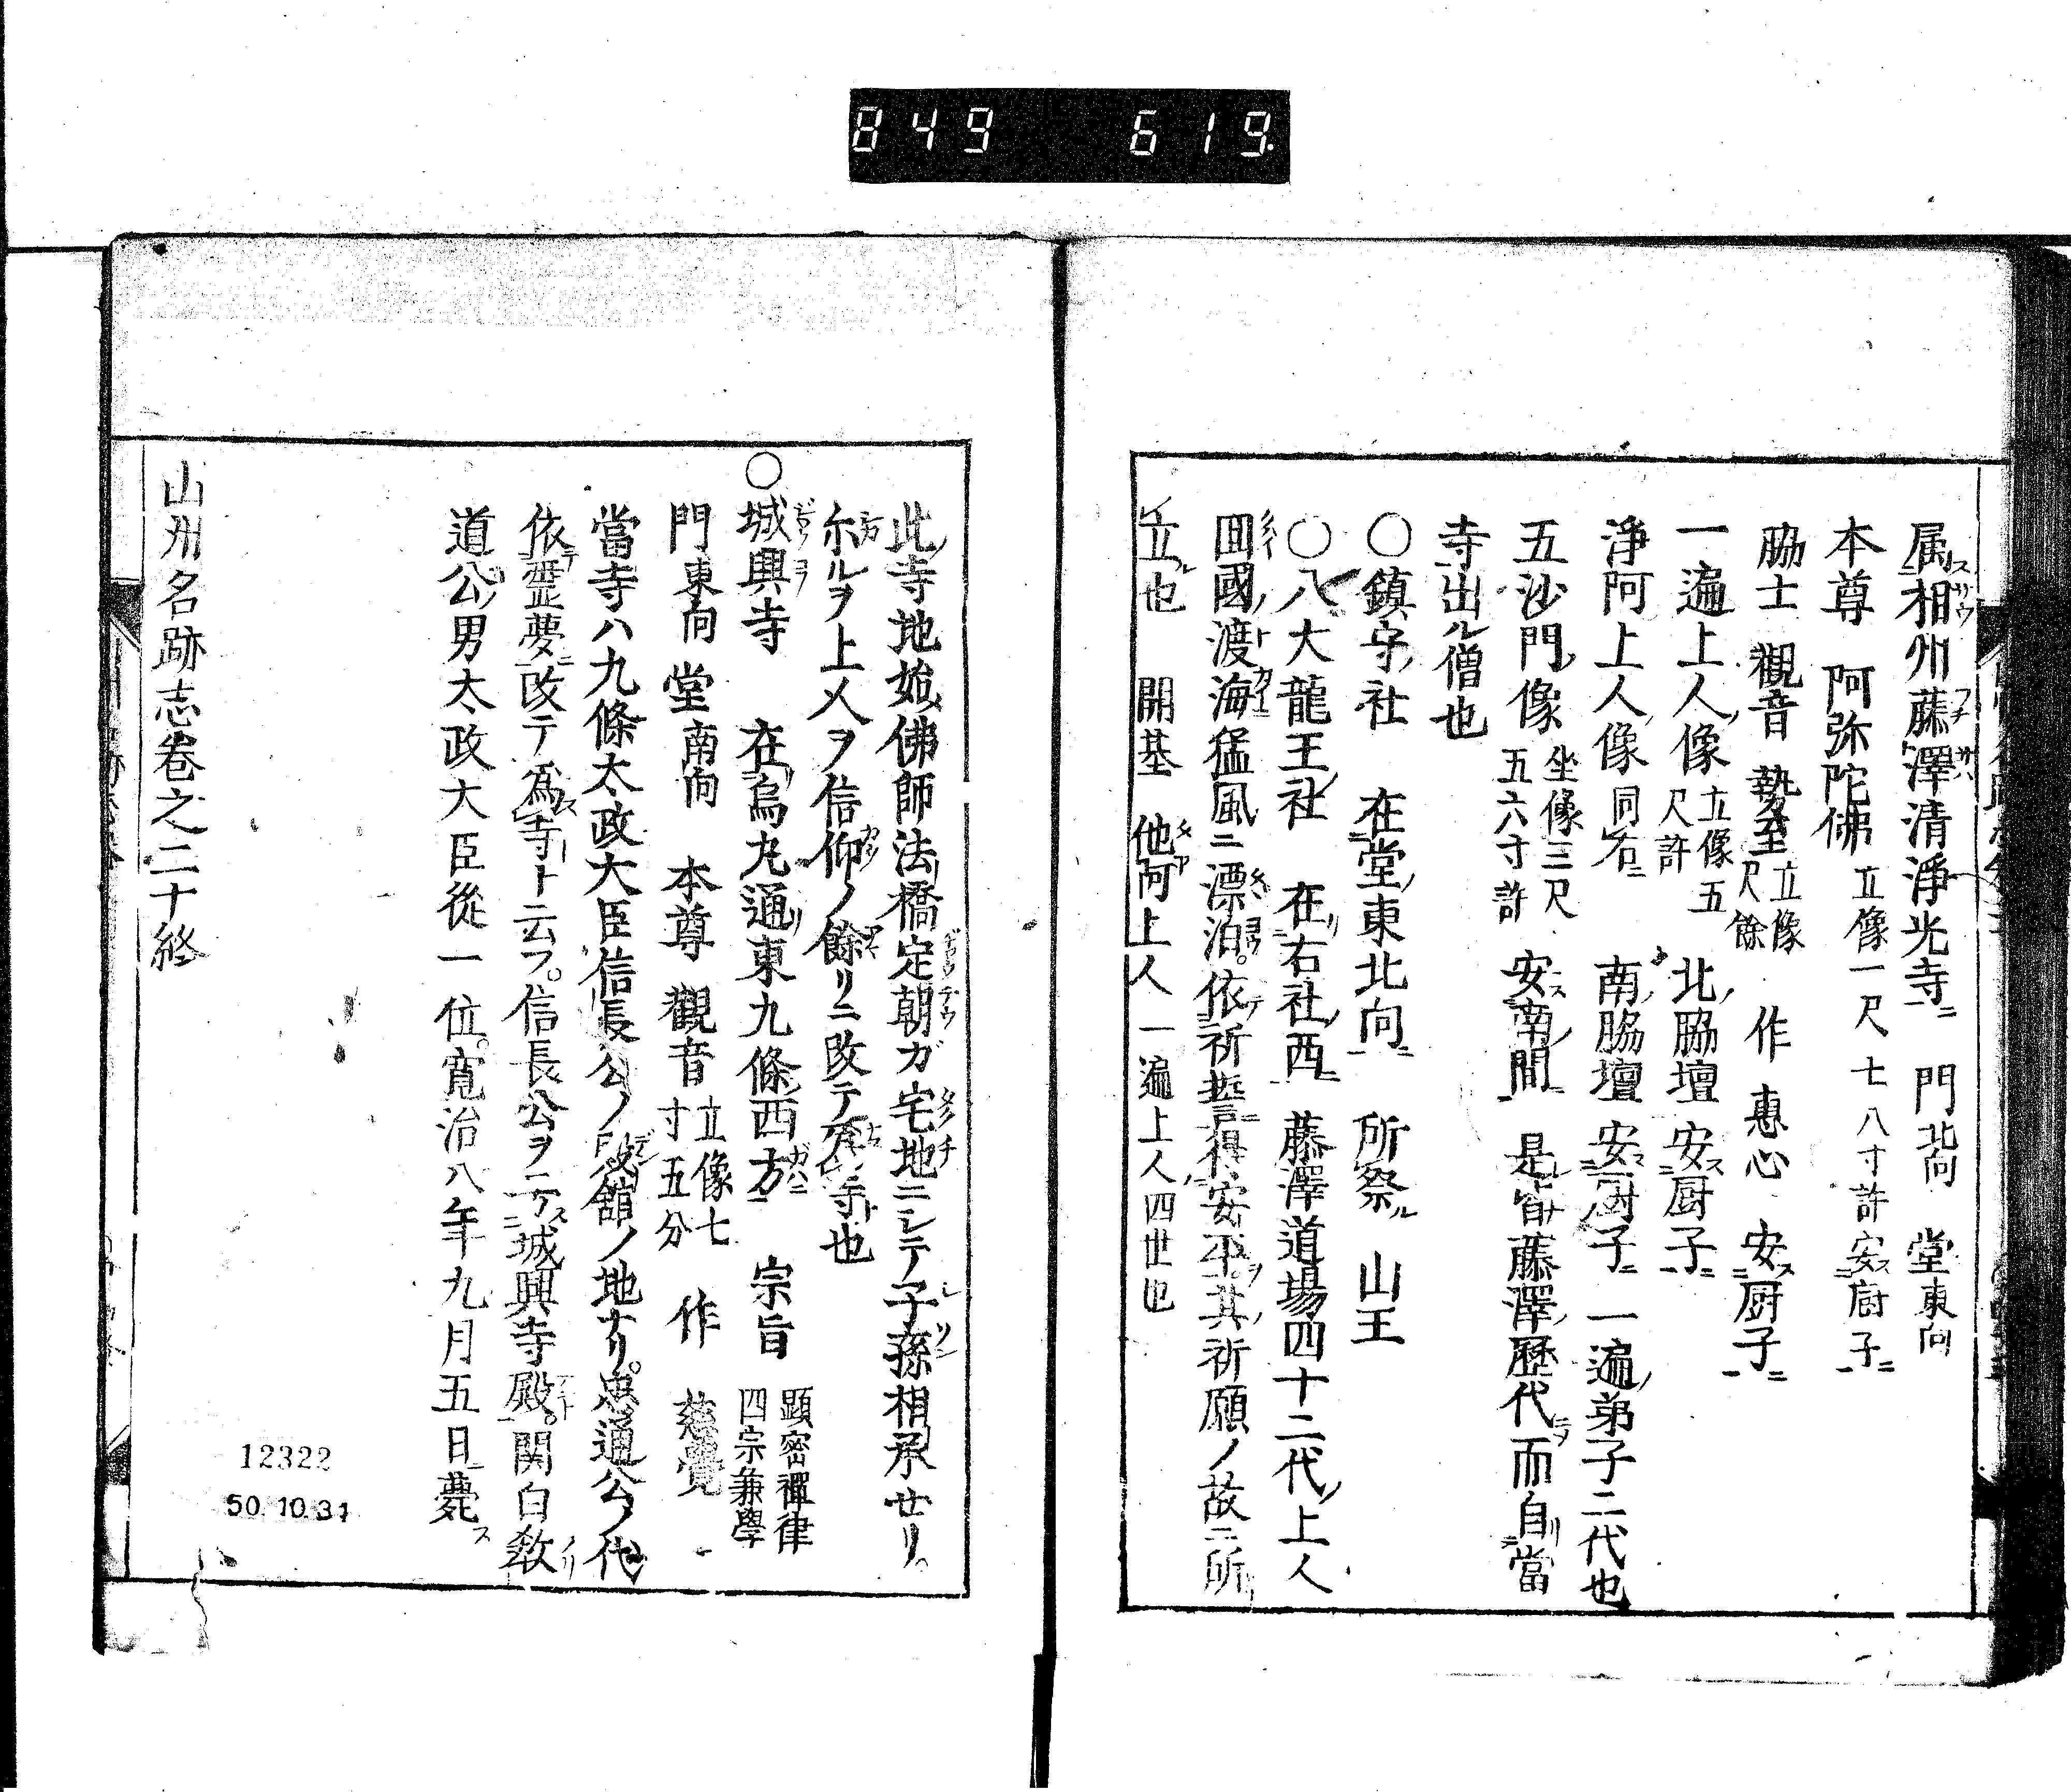 849 619
属相州藤澤清淨光寺ニ 門北向 堂東向
本尊 阿弥陀佛 立像一尺七八寸許安厨子ニ
脇士 觀音 勢至 立像尺餘 作 惠心 安厨子ニ
一遍上人像 立像五尺許 北ノ脇壇安厨子ニ
淨阿上人像 同右ニ 南ノ脇壇安厨子ニ 一遍弟子二代也
五沙門像 坐像三尺五六寸許 安南ノ間ニ 是皆藤澤歷代而自當
寺出ル僧也
〇鎮守ノ社 在堂ノ東北向ニ 所祭ル 山王
〇八大龍王社 在右社ノ西ニ 藤澤道場四十二代ノ上人
回國ノ渡海猛風ニ漂泊。依祈誓得安平ヲ其祈願ノ故ニ所
立ル也 開基 他阿上人 一遍上人四世也
此寺地始ハ佛師法橋定朝ガ宅地ニシテ子孫相承セリ。
尓ルヲ上人ヲ信仰ノ餘リニ改テ為寺ト也
〇城興寺 在烏丸通東九條西方ニ 宗旨 顕密禪律四宗兼學
門東向 堂南向 本尊 觀音 立像七寸五分 作 慈覺
當寺ハ九條太政大臣信長公ノ殿舘ノ地ナリ。忠通公ノ代
依霊夢ニ改テ為寺ト云フ。信長公ヲ城興寺殿。関白教
道公ノ男太政大臣従一位。寛治八年九月五日薨ス
山州名跡志巻之二十終
12322
50.10.31